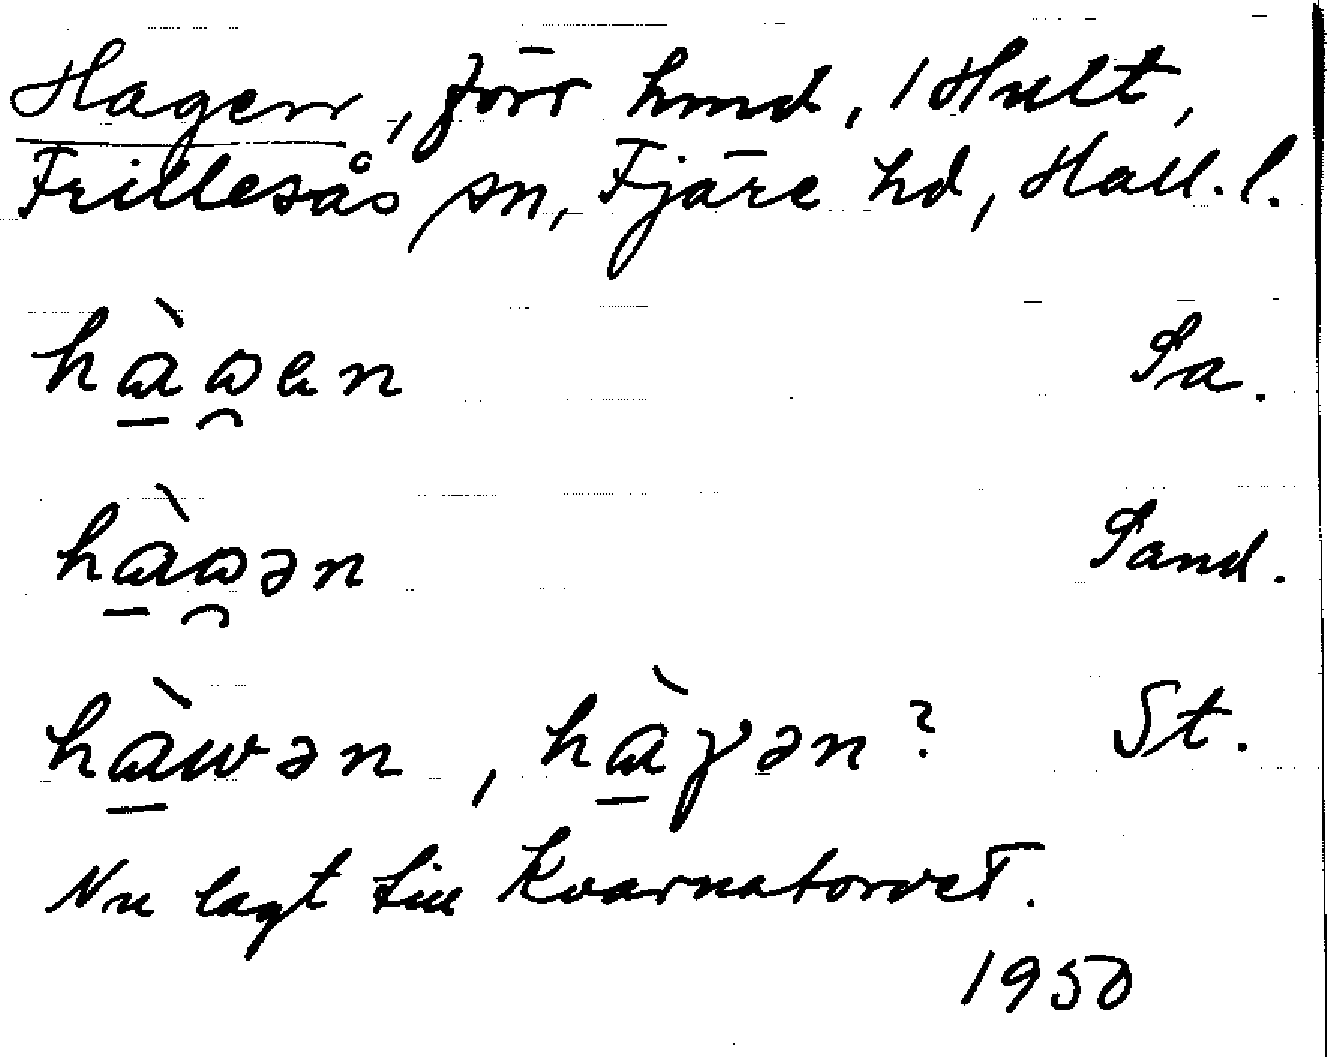 Hagen, förr hmd, 1 Hult,
Frillesås sn, Fjäre hd, Hall. l.
hàωen Sa.
hàωən Sand.
hàwən, hàγən? St.
Nu lagt till Kvarnatorvet.
1950